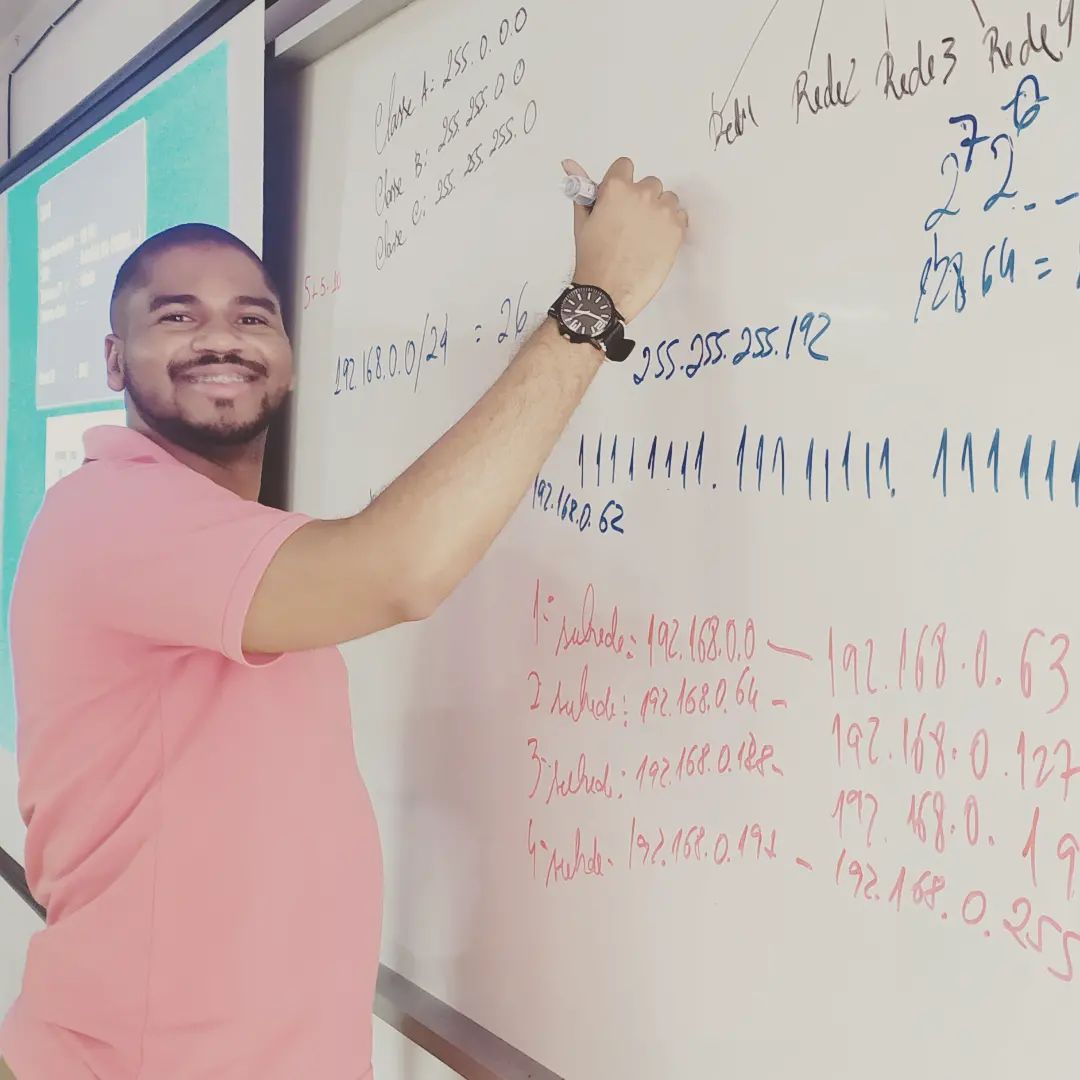 Classe A: 255.0.0.0
Classe B: 255.255.0.0
Classe C: 255.255.255.0
Rede1 Rede2 Rede3 Rede4
2^7 2^6 . . -
128 64 =
192.168.0.0/24 = 26
255.255.255.192
11111111. 11111111. 111111
192.168.0.62
1ª subrede: 192.168.0.0 — 192.168.0.63
2 subrede: 192.168.0.64 - 192.168.0.127
3ª subrede: 192.168.0.128- 192.168.0.19
4ª subrede- 192.168.0.191 - 192.168.0.255